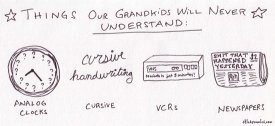 ☆ THINGS OUR GRANDKIDS WILL NEVER ☆
UNDERSTAND:
cursive
handwriting
SHIT THAT
HAPPENED
YESTERDAY
ANALOG
CLOCKS
CURSIVE
VCRs
NEWSPAPERS